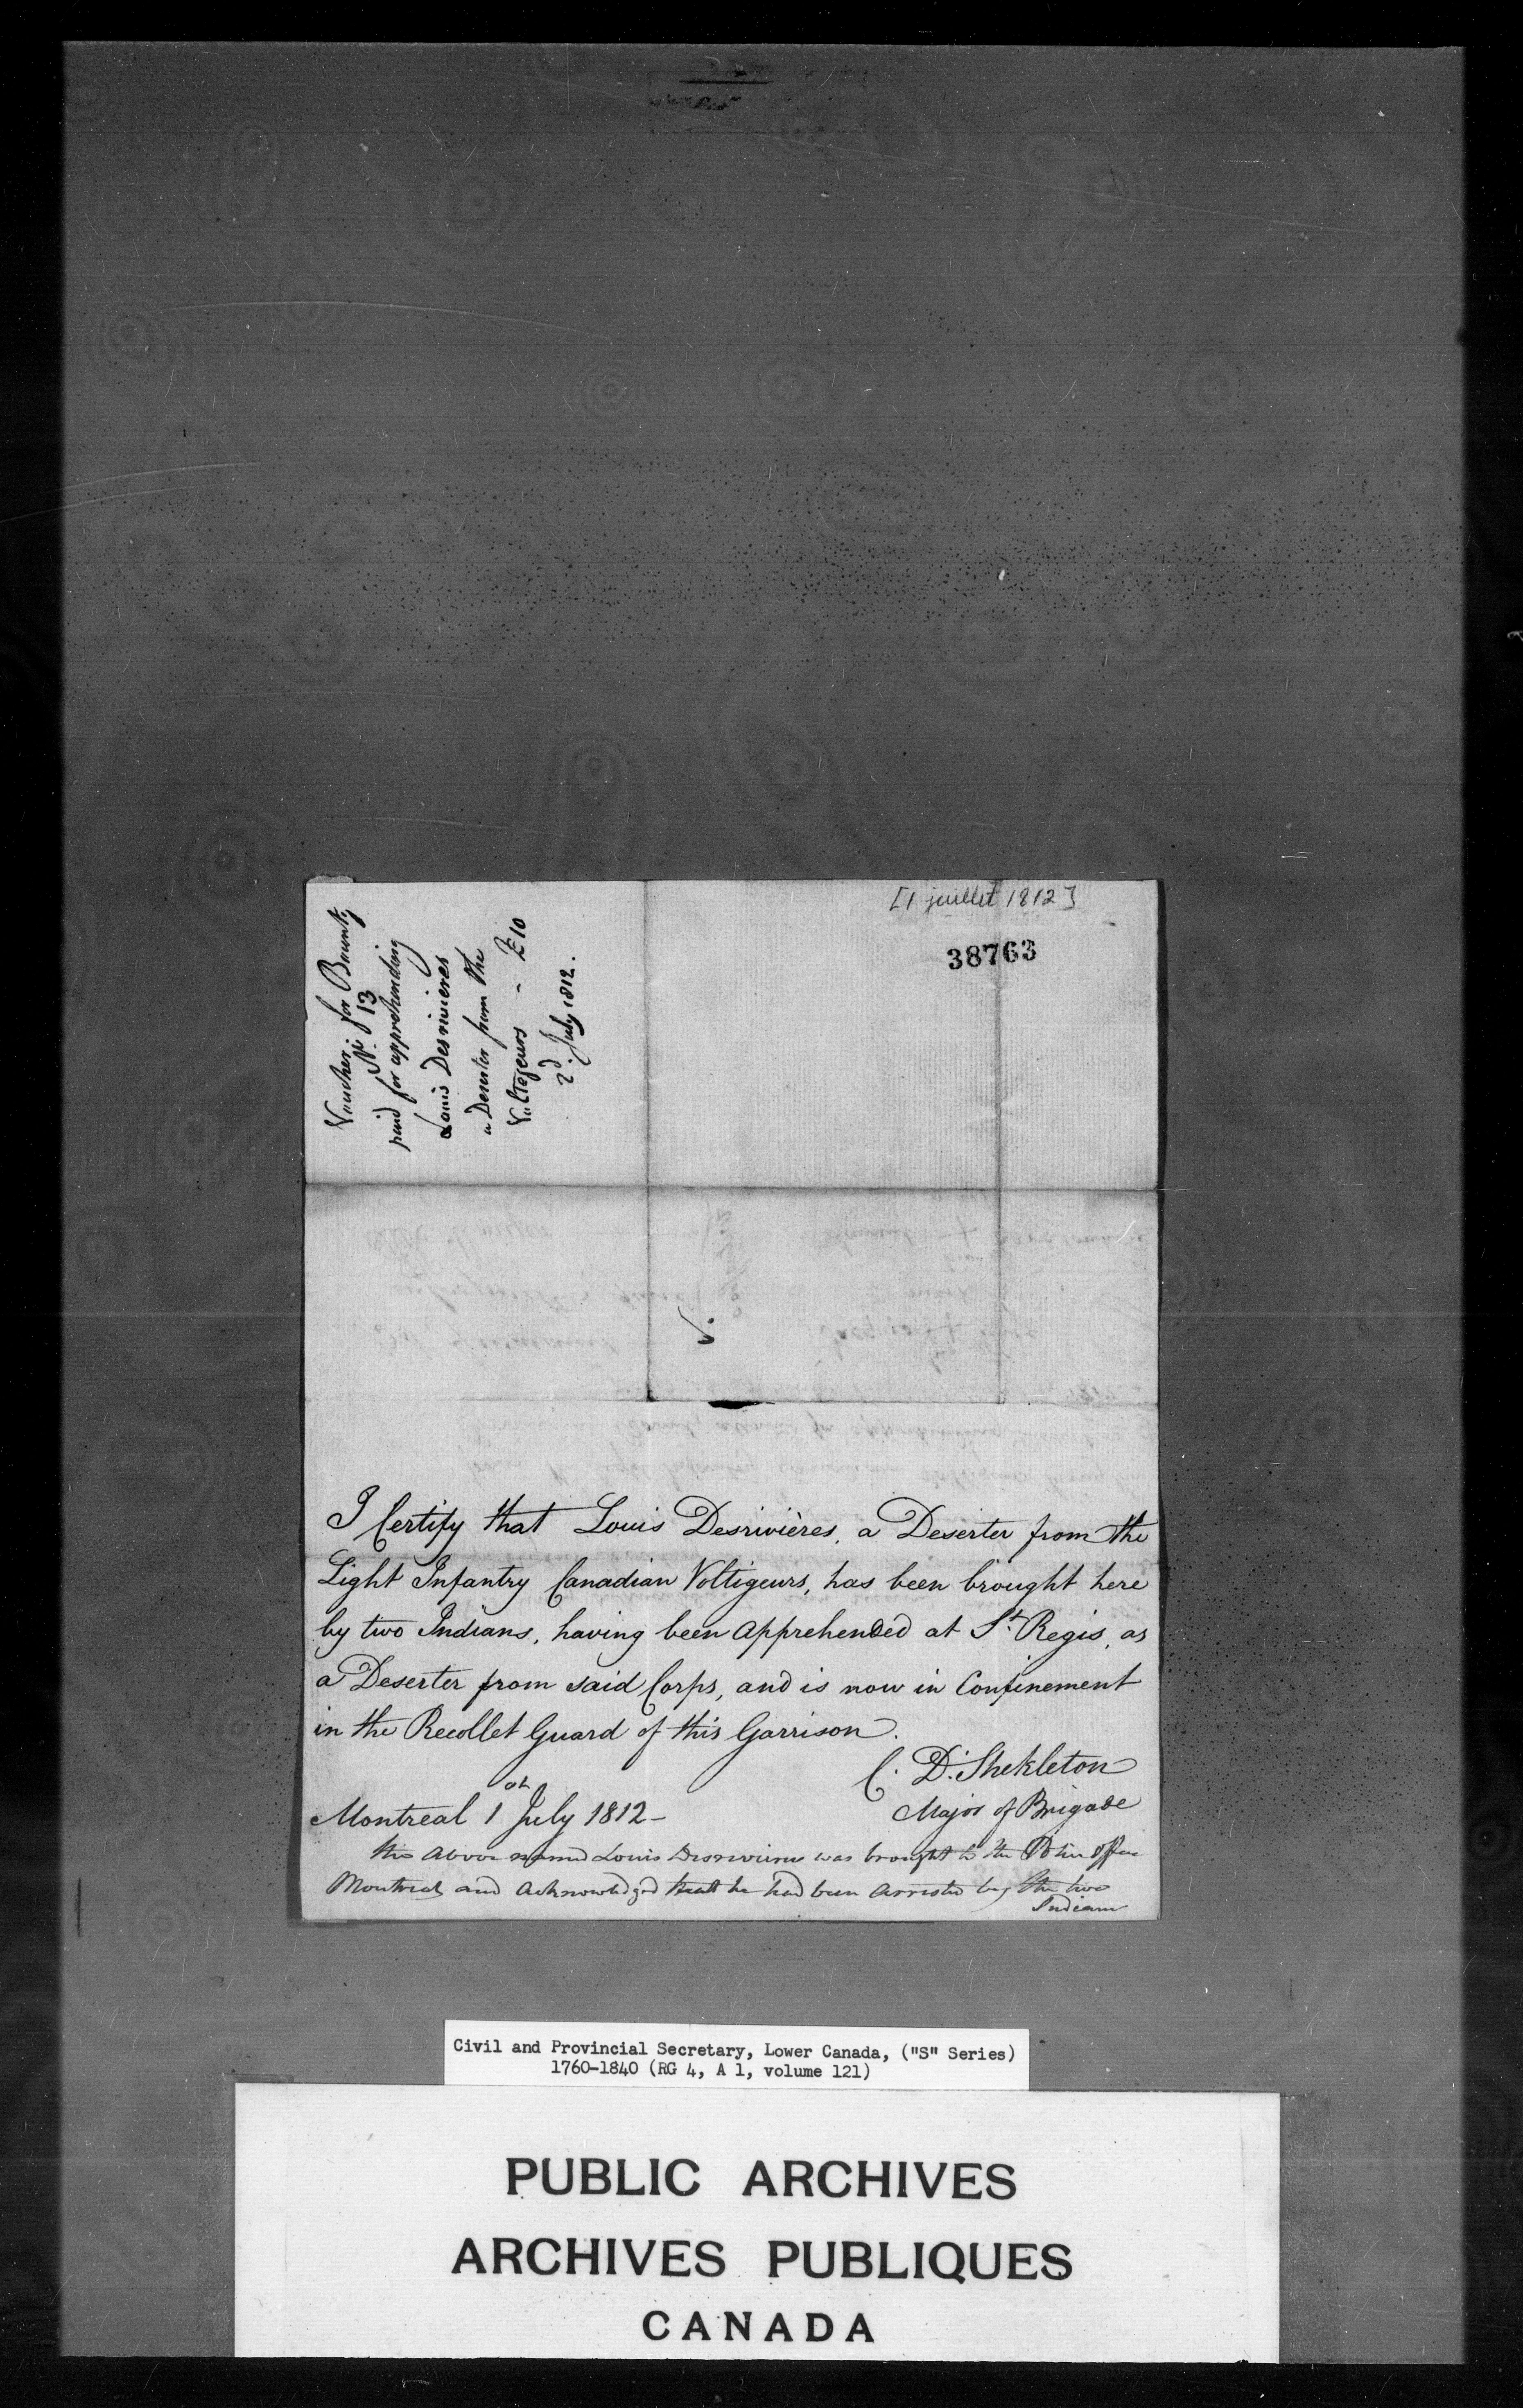 [1 juillet 1812]
38763
Voucher for Bounty
No. 13
paid for apprehending
Louis Desrivieres
a Deserter from the
Voltigeurs - £10
2d. July 1812.
I Certify that Louis Desrivières, a Deserter from the
Light Infantry Canadian Voltigeurs, has been brought here
by two Indians, having been apprehended at St. Regis, as
a Deserter from said Corps, and is now in Confinement
in the Recollet Guard of this Garrison.
C. D. Shekleton
Major of Brigade
Montreal 1 July 1812 -
the above named Louis Desrivieres was brought to the Police office
Montreal and Acknowledged that he had been Arrested by the two
Indians
Civil and Provincial Secretary, Lower Canada, ("S" Series)
1760-1840 (RG 4, A 1, volume 121)
PUBLIC ARCHIVES
ARCHIVES PUBLIQUES
CANADA